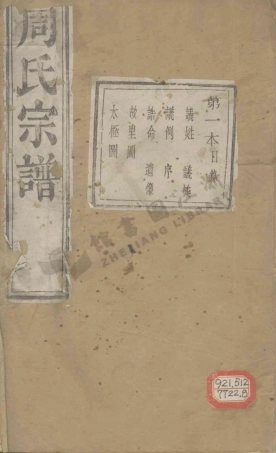 周氏宗譜
第一本目錄
議姓
議例 序
誥命 遺像
故里圖
太極圖
ZHEJIANG LIBRARY
921.512
7722.8